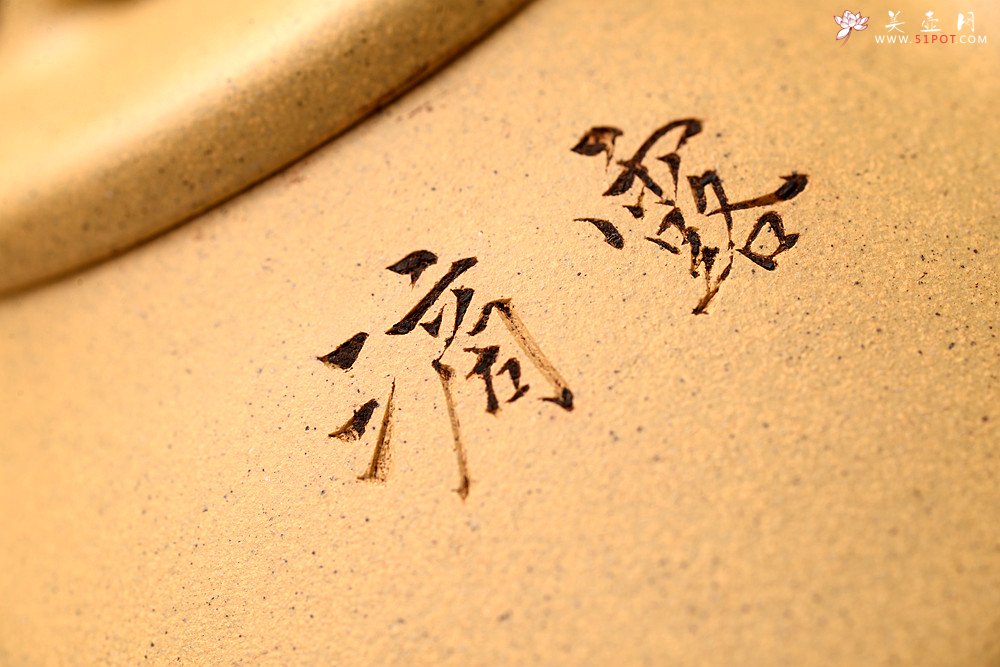 美壶网
WWW.51POT.COM
滴露